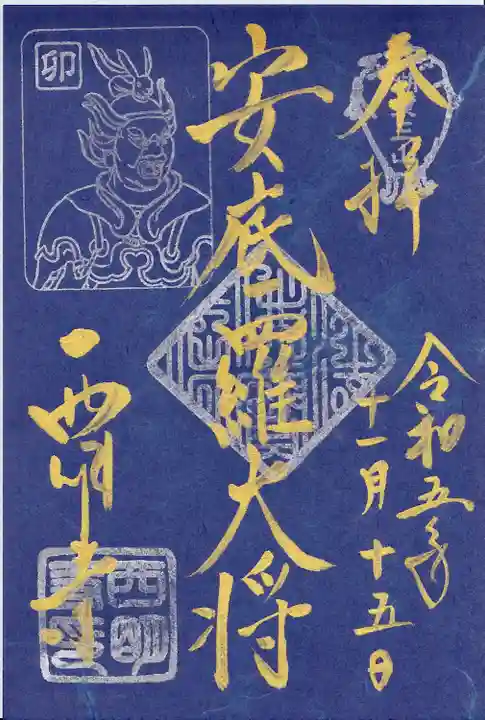 奉拝
令和五年
十一月十五日
安底羅大将
卯
西明寺
西明